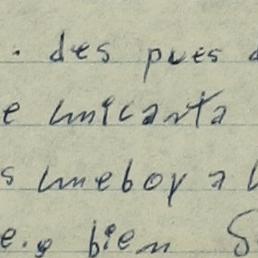 . des pues
e umicarta
s umeboy a
e.g bien S